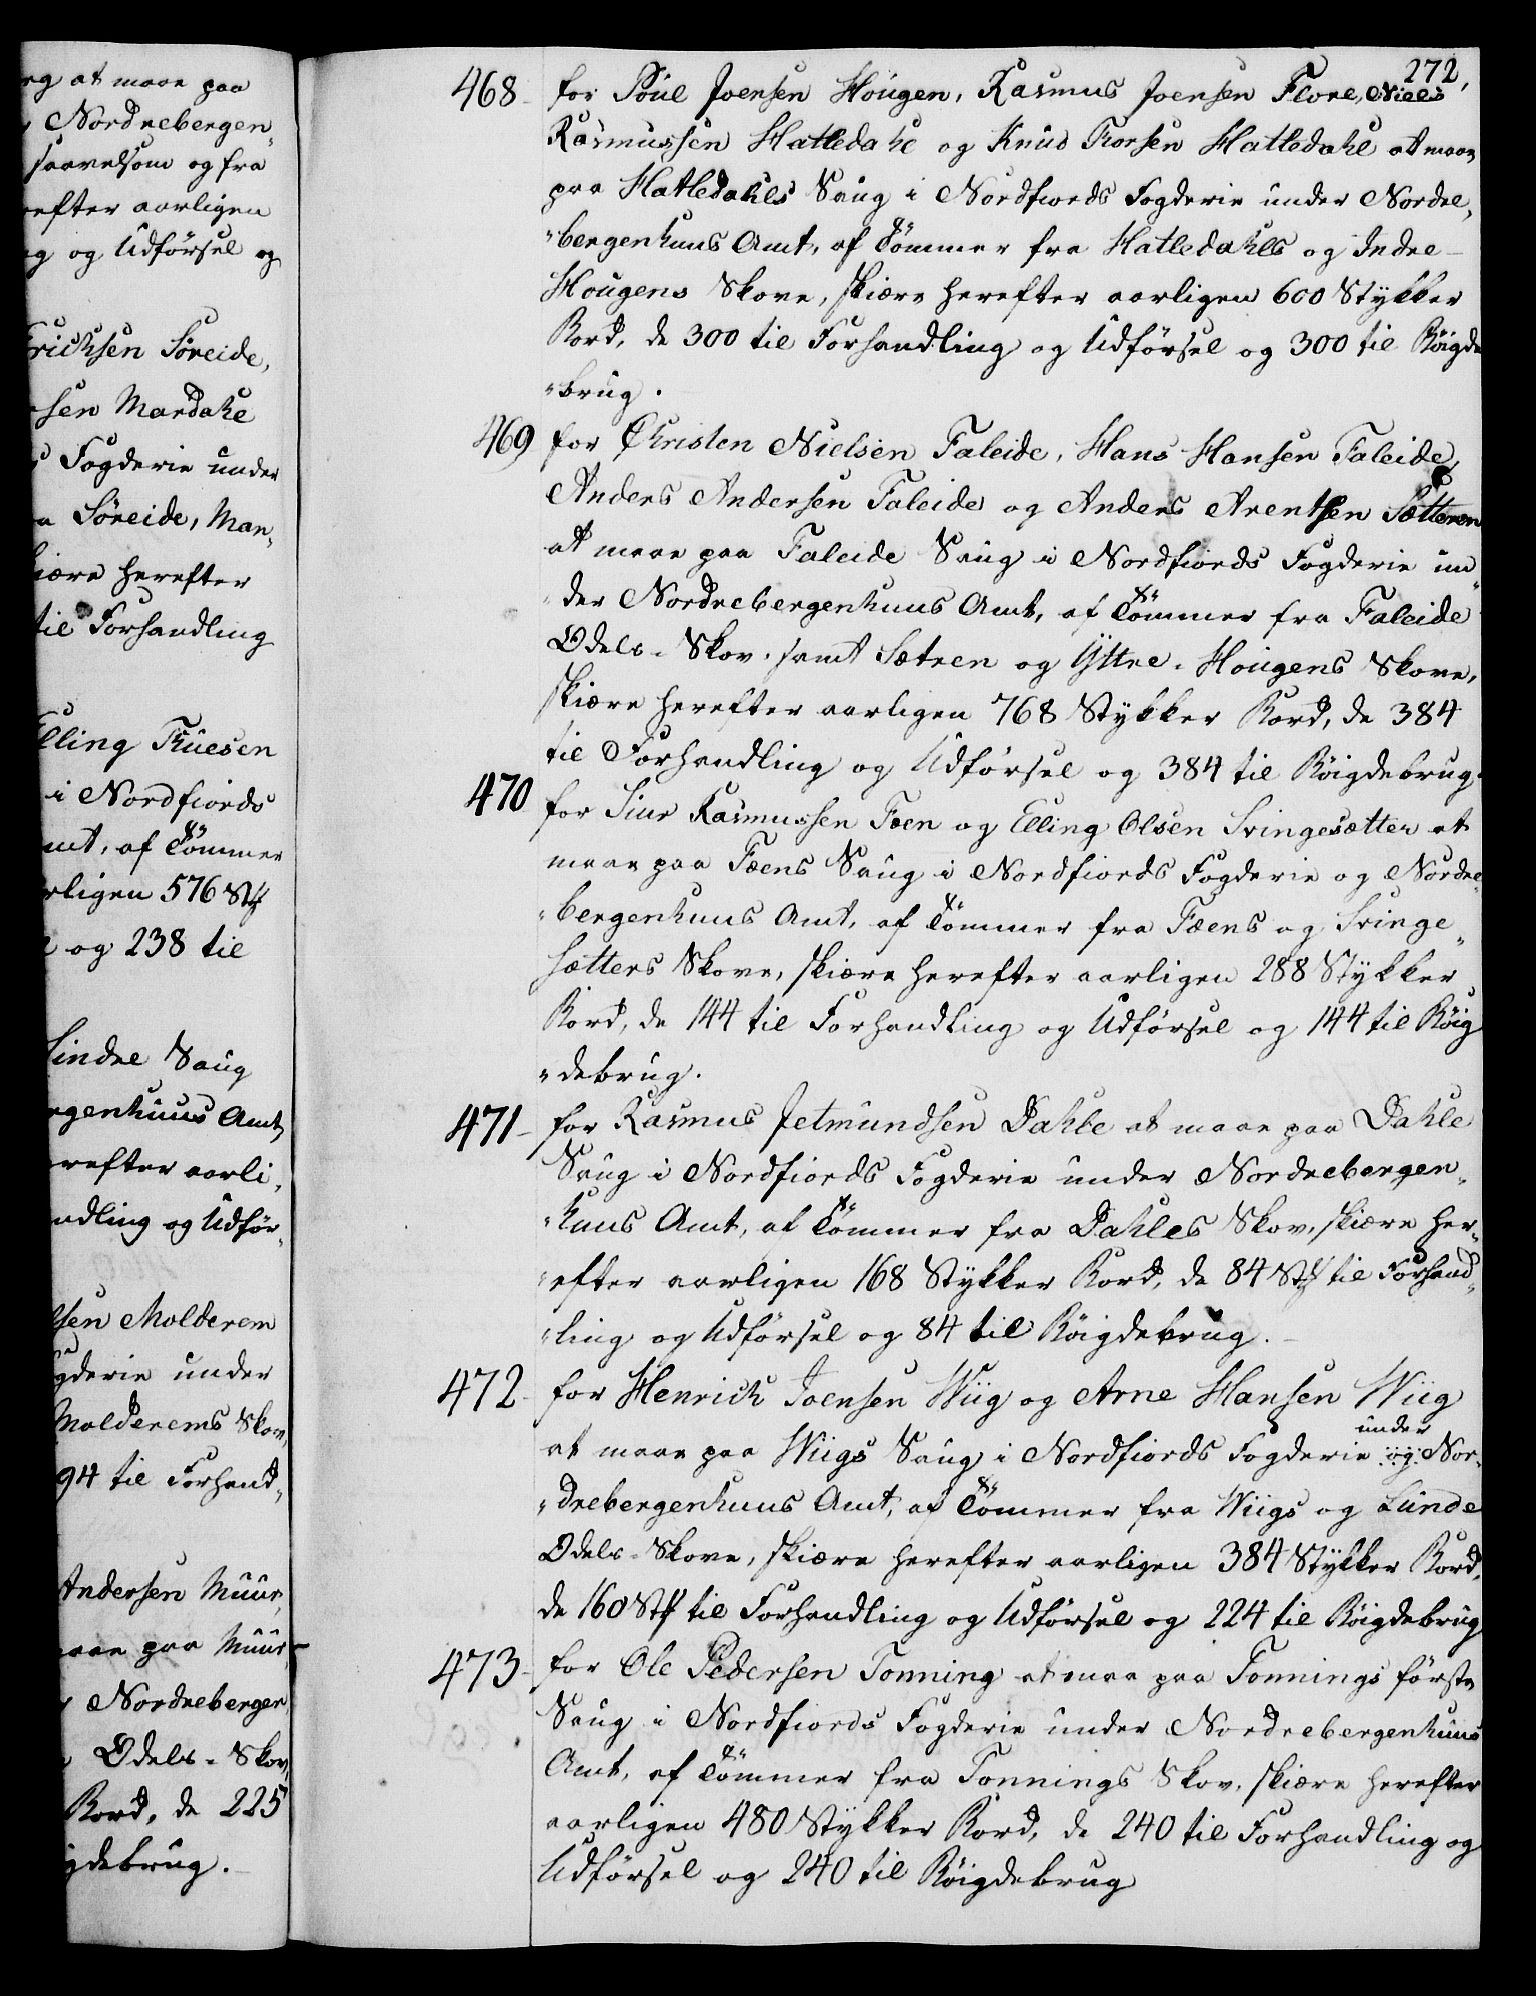 rg at maae paa
Nordrebergen„
saavelsom og fra
efter aarligen
g og Udförsel og
Erichsen Söreide,
sen Mardahl
Fogderie under
Söreide, Man„
iære herefter
til Forhandling
Elling Truesen
i Nordfiords
mt, af Tömmer
rligen 576 Stk
og 238 til
Lindre Saug
rgenhuus Amt,
erefter aarli„
ndling og Udför„
sen Molderem
gderie under
Molderems Skov,
94 til Forhand„
Andersen Muur,
maae paa Muur„
Nordrebergen
Odels-Skov,
Bord, de 225
ygdebrug.
272,
468 for Poul Joensen Hougen, Rasmus Joensen Flore, Niels
Rasmussen Hatledahl og Knud Torsen Hatledahl at maae
paa Hatledahls Saug i Nordfiords Fogderie under Nordre„
„bergenhuus Amt, af Tömmer fra Hatledahls og Indre-
Hougens Skove, skiære herefter aarligen 600 Stykker
Bord, de 300 til Forhandling og Udförsel og 300 til Böigde
„brug.
469 for Christen Nielsen Faleide, Hans Hansen Faleide,
Anders Andersen Faleide og Anders Arentsen Sætteren
at maae paa Faleide Saug i Nordfiords Fogderie un„
„der Nordrebergenhuus Amt, af Tömmer fra Faleide
Odels-Skov, samt Sætren og Yttre-Hougens Skove,
skiære herefter aarligen 768 Stykker Bord, de 384
til Forhandling og Udförsel og 384 til Böigdebrug.
470 for Siur Rasmussen Fæen og Elling Olsen Svingesætter at
maae paa Fæens Saug i Nordfiords Fogderie og Nordre„
„bergenhuus Amt, af Tömmer fra Fæens og Svinge„
sætters Skove, skiære herefter aarligen 288 Stykker
Bord, de 144 til Forhandling og Udförsel og 144 til Böig
„debrug.
471- for Rasmus Jetmundsen Dahle at maae paa Dahle
Saug i Nordfiords Fogderie under Nordrebergen„
„huus Amt, af Tömmer fra Dahles Skov, skiære her„
„efter aarligen 168 Stykker Bord, de 84 Stk til Forhand„
„ling og Udförsel og 84 til Böigdebrug.-
472- for Henrich Joensen Wiig og Arne Hansen Wiig
under
at maae paa Wiigs Saug i Nordfiords Fogderie og Nor„
„drebergenhuus Amt, af Tömmer fra Wiigs og Lunde
Odels-Skove, skiære herefter aarligen 384 Stykker Bord,
de 160 Stk til Forhandling og Udförsel og 224 til Böigdebrug
473- for Ole Pedersen Tonning at maa paa Tonnings förste
Saug i Nordfiords Fogderie under Nordrebergenhuus
Amt, af Tömmer fra Tonnings Skov, skiære herefter
aarligen 480 Stykker Bord, de 240 til Forhandling og
Udförsel og 240 til Böigdebrug